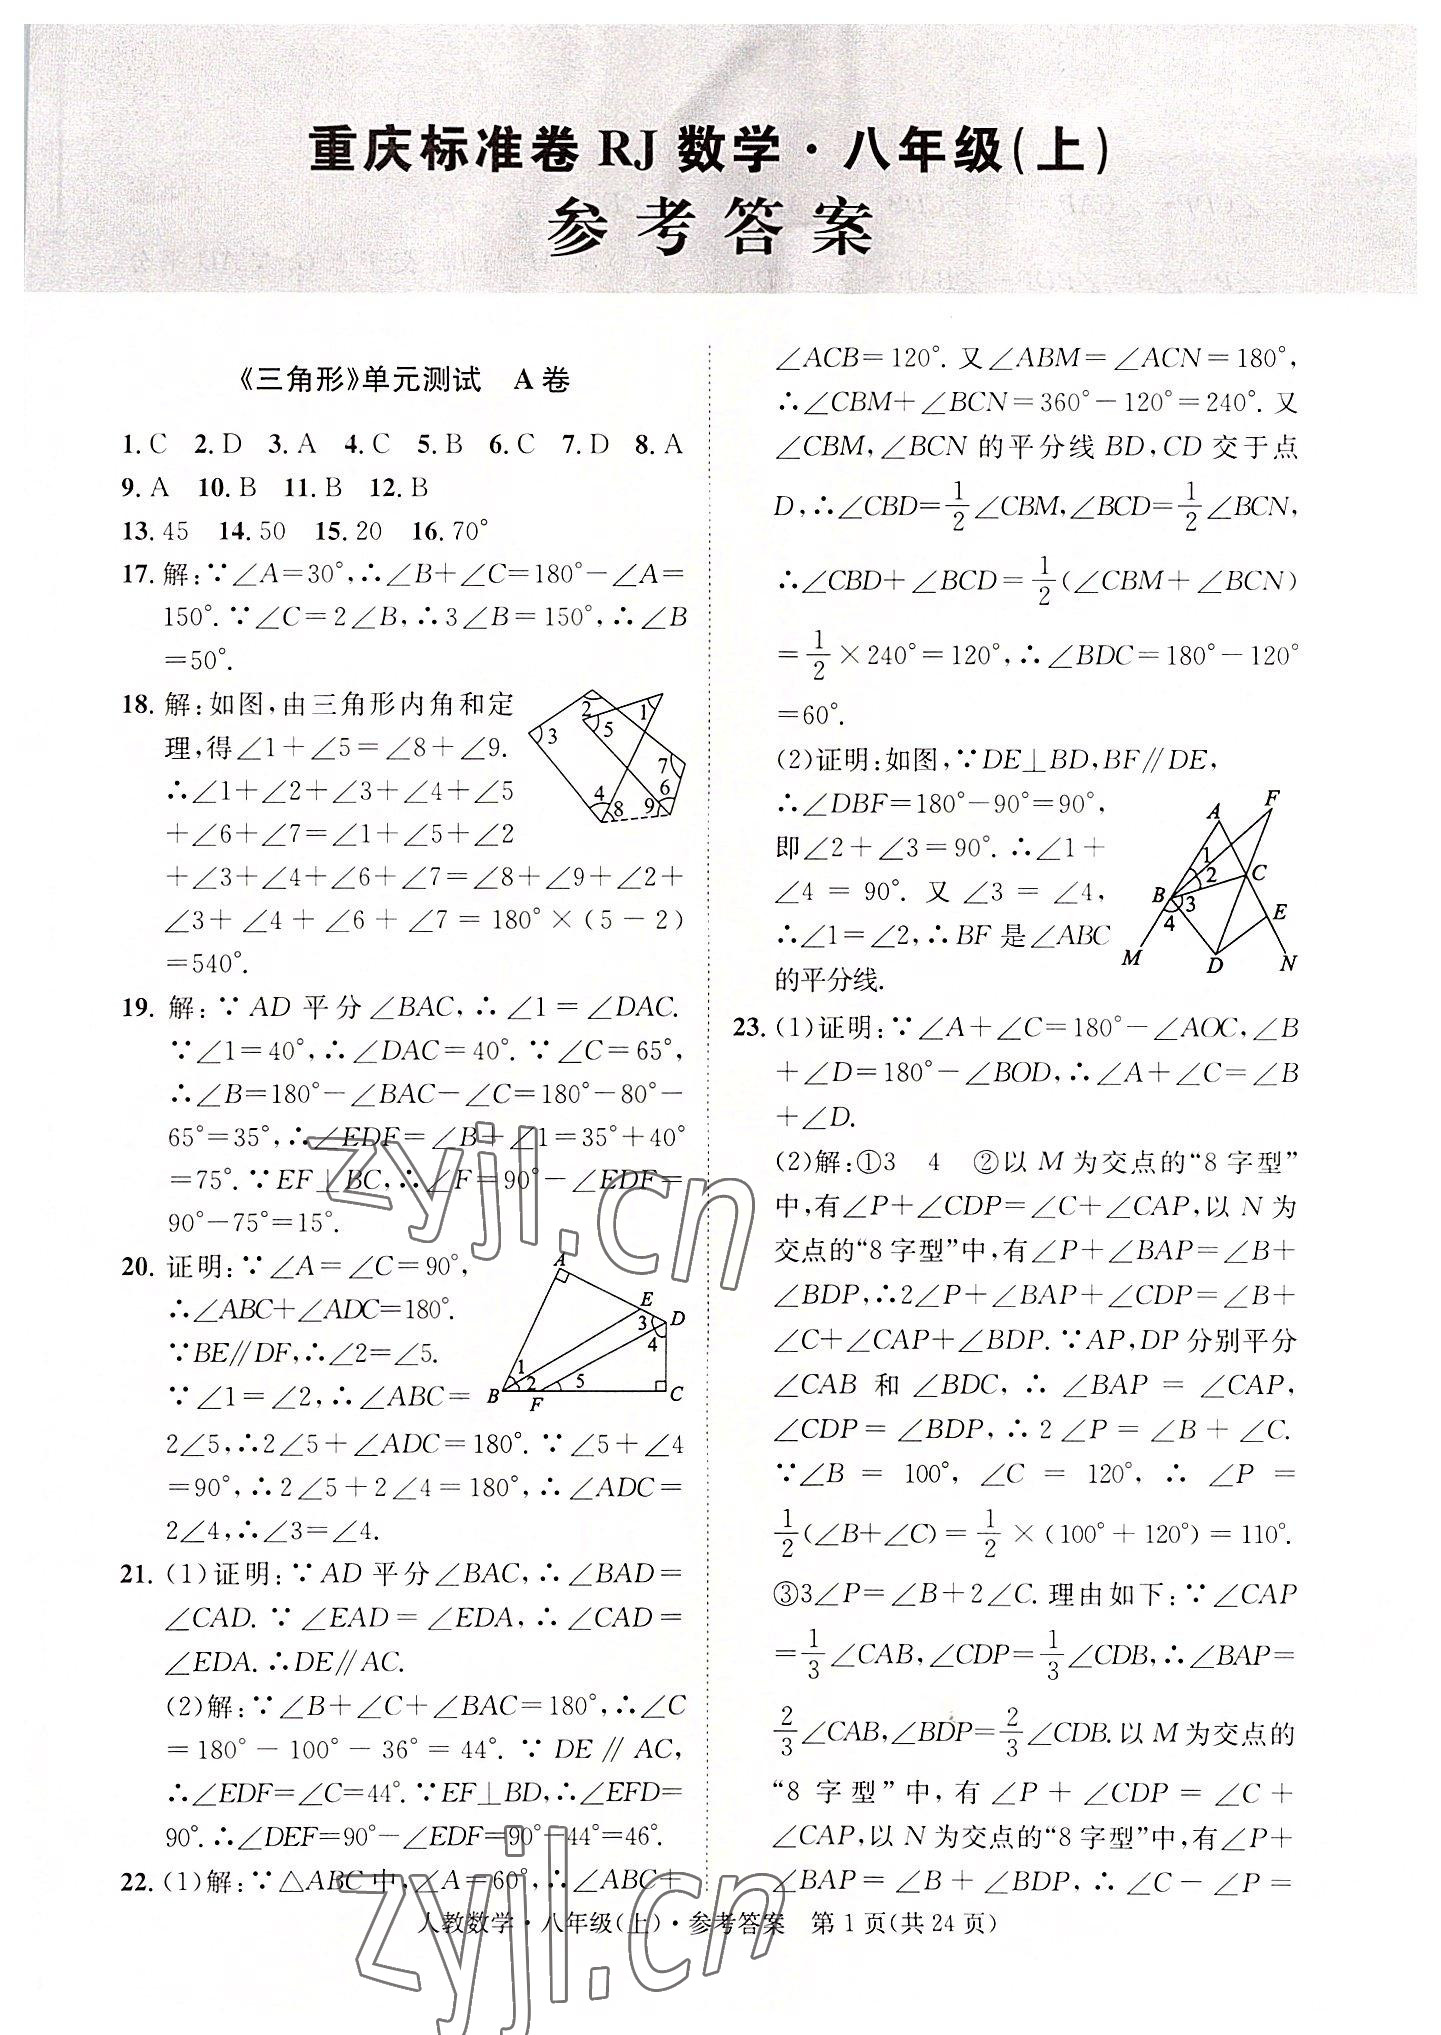 重庆标准卷 RJ 数学·八年级(上)
参考答案
《三角形》单元测试 A 卷
1. C 2. D 3. A 4. C 5. B 6. C 7. D 8. A
9. A 10. B 11. B 12. B
13. 45 14. 50 15. 20 16. 70°
17. 解:∵∠A=30°,∴∠B+∠C=180°-∠A=
150°.∵∠C=2∠B,∴3∠B=150°,∴∠B
=50°.
18. 解:如图,由三角形内角和定
理,得∠1+∠5=∠8+∠9.
∴∠1+∠2+∠3+∠4+∠5
+∠6+∠7=∠1+∠5+∠2
+∠3+∠4+∠6+∠7=∠8+∠9+∠2+
∠3+∠4+∠6+∠7=180°×(5-2)
=540°.
2 1 5 3 7 4 6 8 9
19. 解:∵AD 平分∠BAC,∴∠1=∠DAC.
∵∠1=40°,∴∠DAC=40°.∵∠C=65°,
∴∠B=180°-∠BAC-∠C=180°-80°-
65°=35°,∴∠EDF=∠B+∠1=35°+40°
=75°.∵EF⊥BC,∴∠F=90°-∠EDF=
90°-75°=15°.
20. 证明:∵∠A=∠C=90°,
∴∠ABC+∠ADC=180°.
∵BE∥DF,∴∠2=∠5.
∵∠1=∠2,∴∠ABC=
2∠5,∴2∠5+∠ADC=180°.∵∠5+∠4
=90°,∴2∠5+2∠4=180°,∴∠ADC=
2∠4,∴∠3=∠4.
A E D 3 4 1 2 5 B F C
21. (1)证明:∵AD 平分∠BAC,∴∠BAD=
∠CAD.∵∠EAD=∠EDA,∴∠CAD=
∠EDA.∴DE∥AC.
(2)解:∵∠B+∠C+∠BAC=180°,∴∠C
=180°-100°-36°=44°.∵DE∥AC,
∴∠EDF=∠C=44°.∵EF⊥BD,∴∠EFD=
90°.∴∠DEF=90°-∠EDF=90°-44°=46°.
22. (1)解:∵△ABC中,∠A=60°,∴∠ABC+
∠ACB=120°.又∠ABM=∠ACN=180°,
∴∠CBM+∠BCN=360°-120°=240°.又
∠CBM,∠BCN 的平分线 BD,CD 交于点
D,∴∠CBD=1/2∠CBM,∠BCD=1/2∠BCN,
∴∠CBD+∠BCD=1/2(∠CBM+∠BCN)
=1/2×240°=120°,∴∠BDC=180°-120°
=60°.
(2)证明:如图,∵DE⊥BD,BF∥DE,
∴∠DBF=180°-90°=90°,
即∠2+∠3=90°.∴∠1+
∠4=90°.又∠3=∠4,
∴∠1=∠2,∴BF 是∠ABC
的平分线.
A F 1 2 C B 3 4 E M D N
23. (1)证明:∵∠A+∠C=180°-∠AOC,∠B
+∠D=180°-∠BOD,∴∠A+∠C=∠B
+∠D.
(2)解:①3 4 ②以 M 为交点的“8 字型”
中,有∠P+∠CDP=∠C+∠CAP,以 N 为
交点的“8 字型”中,有∠P+∠BAP=∠B+
∠BDP,∴2∠P+∠BAP+∠CDP=∠B+
∠C+∠CAP+∠BDP.∵AP,DP 分别平分
∠CAB 和∠BDC,∴∠BAP=∠CAP,
∠CDP=∠BDP,∴2∠P=∠B+∠C.
∵∠B=100°,∠C=120°,∴∠P=
1/2(∠B+∠C)=1/2×(100°+120°)=110°.
③3∠P=∠B+2∠C.理由如下:∵∠CAP
=1/3∠CAB,∠CDP=1/3∠CDB,∴∠BAP=
2/3∠CAB,∠BDP=2/3∠CDB.以 M 为交点的
“8 字型”中,有∠P+∠CDP=∠C+
∠CAP,以 N 为交点的“8 字型”中,有∠P+
∠BAP=∠B+∠BDP,∴∠C-∠P=
人教数学·八年级(上)·参考答案 第 1 页(共 24 页)
zyjl.cn
zyjl.cn